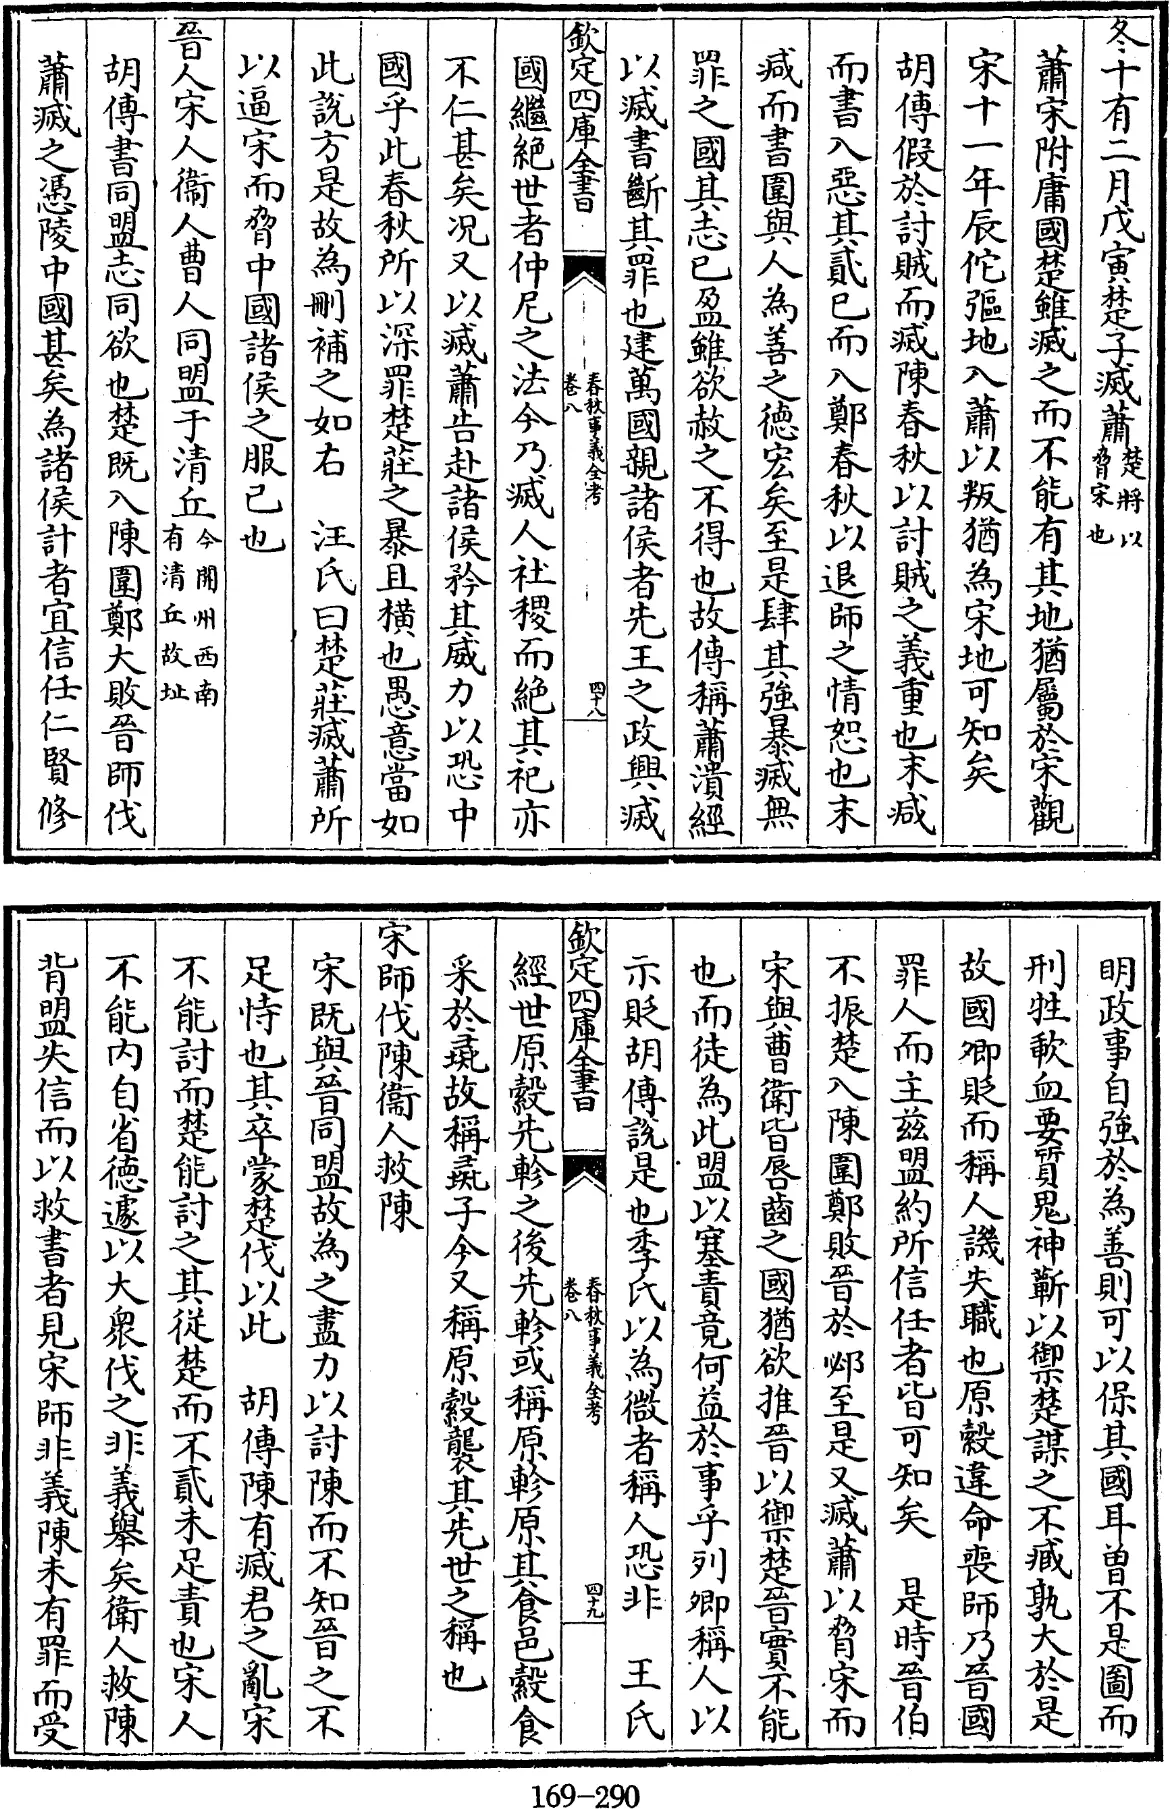 冬十有二月戊寅楚子滅蕭楚將以脅宋也
蕭宋附庸國楚雖滅之而不能有其地猶屬於宋觀
宋十一年辰佗彄地入蕭以叛猶為宋地可知矣
胡傳假於討賊而滅陳春秋以討賊之義重也末減
而書入惡其貳已而入鄭春秋以退師之情恕也末
減而書圍與人為善之德宏矣至是肆其強暴滅無
罪之國其志已盈雖欲赦之不得也故傳稱蕭潰經
以滅書斷其罪也建萬國親諸侯者先王之政興滅
欽定四庫全書
春秋事義全考
卷八
四十八
國繼絶世者仲尼之法今乃滅人社稷而絶其祀亦
不仁甚矣况又以滅蕭告赴諸侯矜其威力以恐中
國乎此春秋所以深罪楚莊之暴且横也愚意當如
此說方是故為刪補之如右　汪氏曰楚莊滅蕭所
以逼宋而脅中國諸侯之服已也
晉人宋人衞人曹人同盟于清丘今開州西南有清丘故址
胡傳書同盟志同欲也楚既入陳圍鄭大敗晉師伐
蕭滅之憑陵中國甚矣為諸侯計者宜信任仁賢修
明政事自強於為善則可以保其國耳曽不是圖而
刑牲歃血要質鬼神蘄以禦楚謀之不臧孰大於是
故國卿貶而稱人譏失職也原縠違命喪師乃晉國
罪人而主兹盟約所信任者皆可知矣　是時晉伯
不振楚入陳圍鄭敗晉於邲至是又滅蕭以脅宋而
宋與曹衛皆唇齒之國猶欲推晉以禦楚晉實不能
也而徒為此盟以塞責竟何益於事乎列卿稱人以
示貶胡傳説是也季氏以為微者稱人恐非　王氏
欽定四庫全書
春秋事義全考
卷八
四十九
經世原縠先軫之後先軫或稱原軫原其食邑縠食
采於彘故稱彘子今又稱原縠襲其先世之稱也
宋師伐陳衞人救陳
宋既與晉同盟故為之盡力以討陳而不知晉之不
足恃也其卒蒙楚伐以此　胡傳陳有滅君之亂宋
不能討而楚能討之其從楚而不貳未足責也宋人
不能内自省德遽以大衆伐之非義舉矣衛人救陳
背盟失信而以救書者見宋師非義陳未有罪而受
169-290